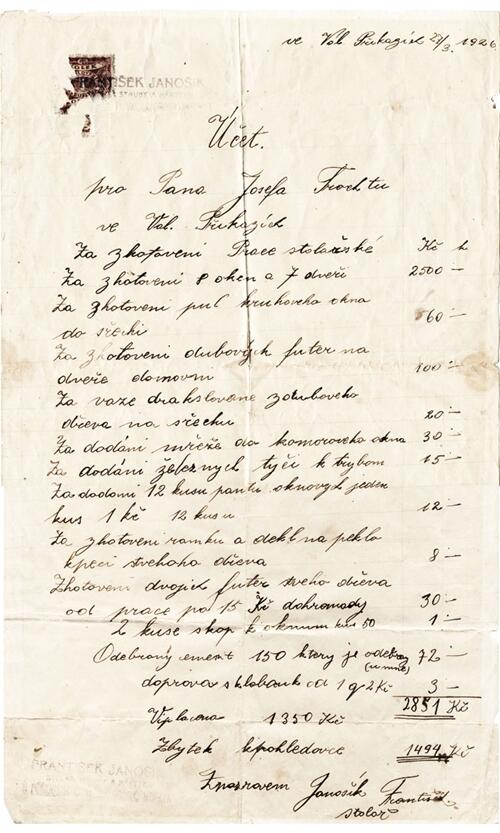 ve Val. Příkazích 27/3. 1926
FRANTIŠEK JANOŠÍK
Účet.
pro Pana Josefa Trochtu
ve Val. Příkazích
Za zhotovení Prace stolařské Kč h
Za zhotovení 8 oken a 7 dveří 2500 —
Za zhotoveni pul kruhoveho okna
do střechi 60 —
Za zhotoveni dubových futer na
dveře domovni 100 —
Za vaze drakslovane zdubového
dřeva na střechu 20 —
Za dodáni mřeže do komoroveho okna 30 —
Za dodáni železnych tyči k trybom 15 —
Za dodani 12 kusu pantu oknovych jeden
kus 1 kč 12 kusu 12 —
Za zhotoveni ramku a dekl na peklo
kpeci svehoho dřeva 8 —
Zhotoveni dvojich futer sveho dřeva
od prace po 15 Kč dohromady 30 —
2 kuse skop k oknum kus 50 1 —
Odebraný cement 150 ktery je odebrany 72 —
(u mne)
doprova s Klobouk od 1 q 2 Kč 3 —
2851 Kč
Vyplacena 1350 Kč
Zbytek kpohledovce 1494 Kč
FRANTIŠEK JANOŠÍK
Znazoravem Janošík František
stolař